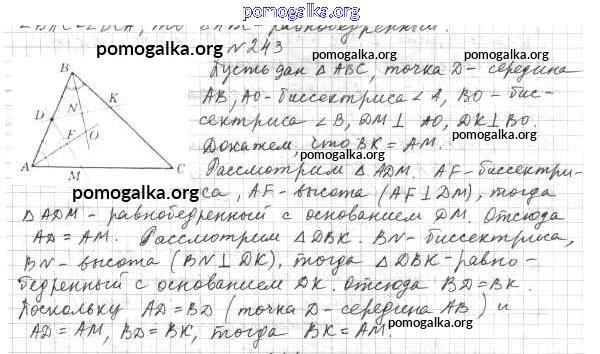 pomogalka.org
∠BAC=∠BCA, то △ABC - равнобедренный.
pomogalka.org
№243
pomogalka.org
Пусть дан △ABC, точка D - середина
AB, AO - биссектриса ∠A, BO - бис-
сектриса ∠B, DM⊥AO, DK⊥BO.
pomogalka.org
Докажем, что BK = AM.
pomogalka.org
Рассмотрим △ADM. AF - биссектри-
са, AF - высота (AF⊥DM), тогда
pomogalka.org
△ADM - равнобедренный с основанием DM. Отсюда
AD = AM. Рассмотрим △DBK. BN - биссектриса,
BN - высота (BN⊥DK), тогда △DBK - равно-
бедренный с основанием DK. Отсюда BD = BK.
Поскольку AD = BD (точка D - середина AB) и
AD = AM, BD = BK, тогда BK = AM.
pomogalka.org
B
K
N
D
F
O
A
M
C